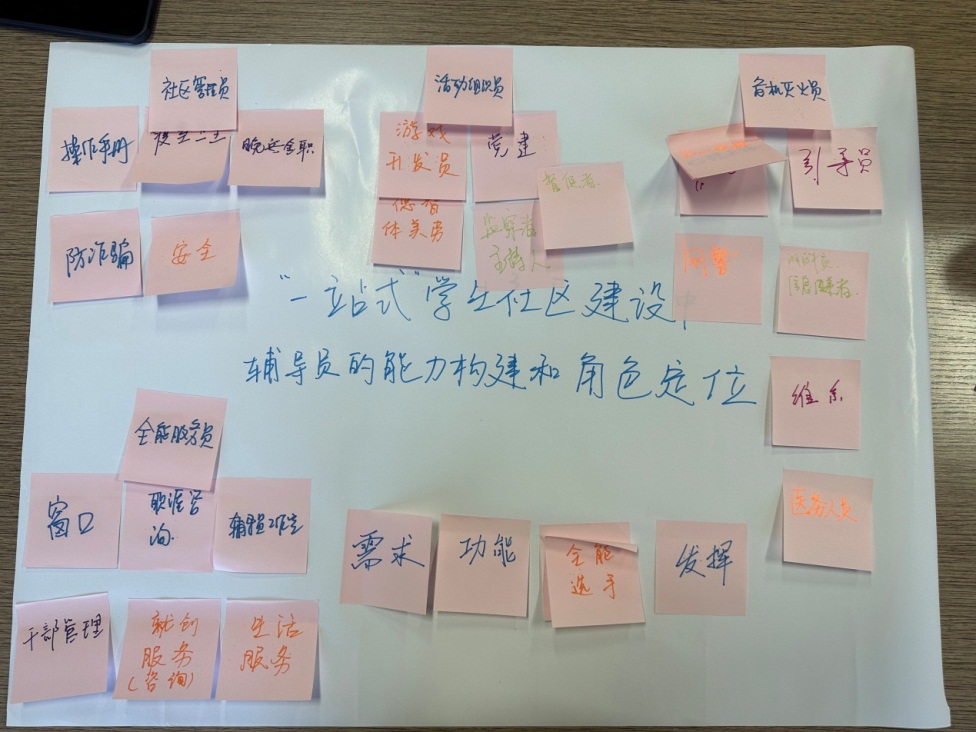 社区管理员
操作手册
晚点名职
防诈骗
安全
活动组织员
游戏
开发员
党建
德智
体美劳
监督者
主持人
管理者
危机灭火员
引导员
网警
信息搜集者
维系
医务人员
“一站式”学生社区建设中
辅导员的能力构建和角色定位
全能服务员
窗口
职涯咨
询
辅导员工作室
干部管理
就创
服务
(咨询)
生活
服务
需求
功能
全能
选手
发挥